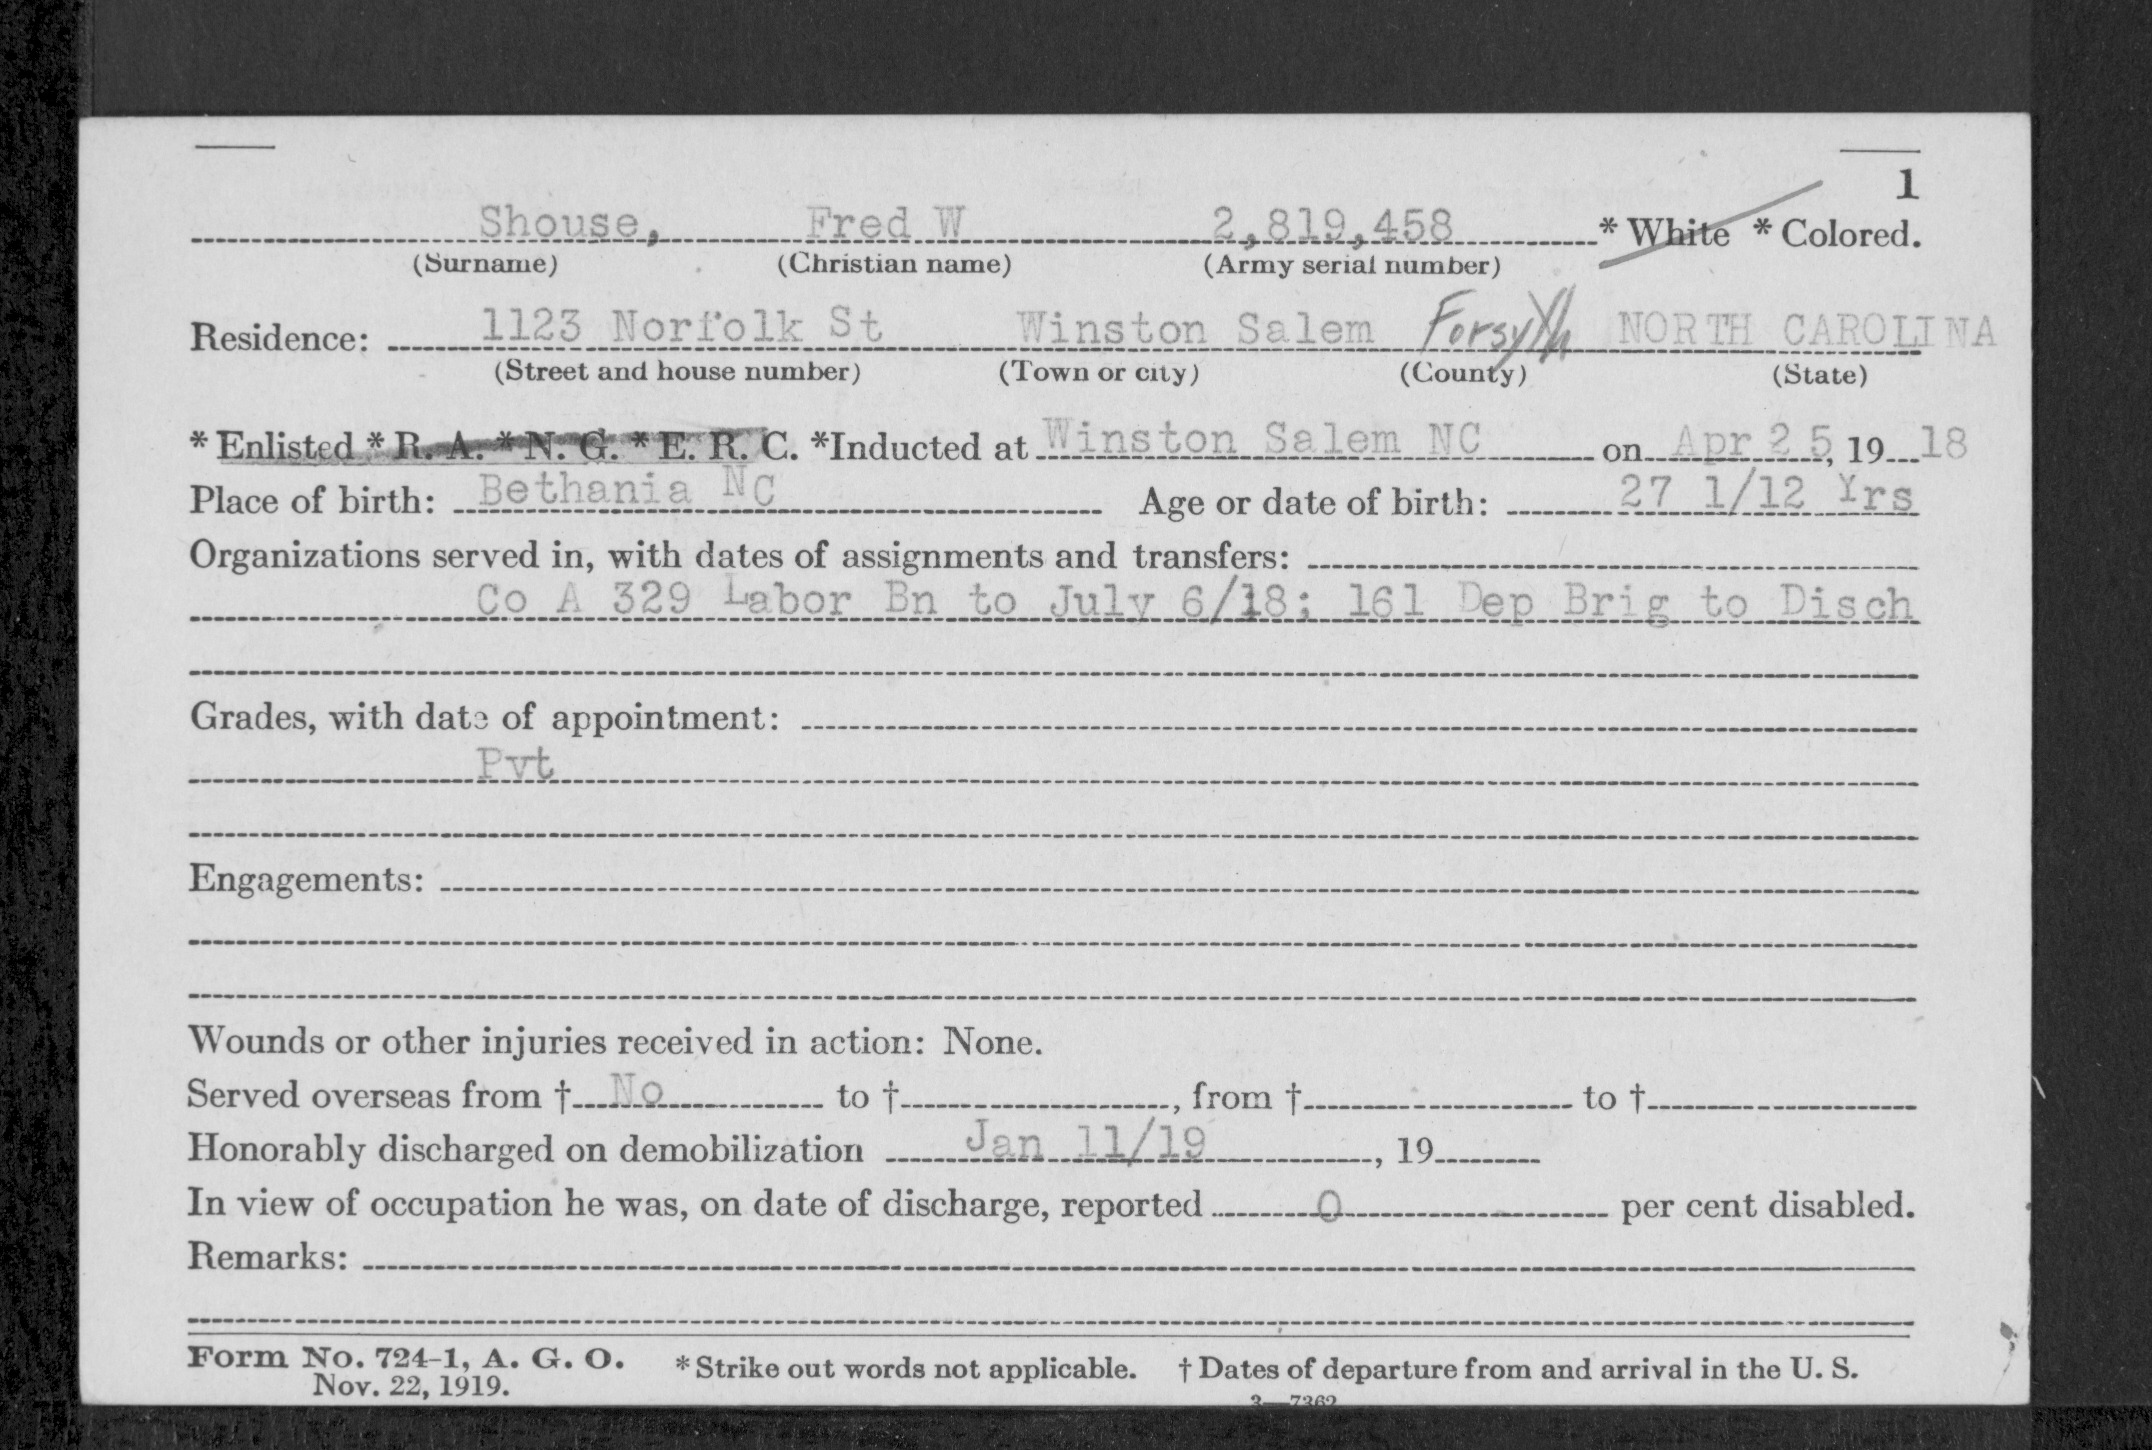 1
Shouse, Fred W 2,819,458 * White * Colored.
(Surname) (Christian name) (Army serial number)
Residence: 1123 Norfolk St Winston Salem Forsyth NORTH CAROLINA
(Street and house number) (Town or city) (County) (State)
* Enlisted * R. A. * N. G. * E. R. C. *Inducted at Winston Salem NC on Apr 25, 19 18
Place of birth: Bethania NC Age or date of birth: 27 1/12 Yrs
Organizations served in, with dates of assignments and transfers:
Co A 329 Labor Bn to July 6/18; 161 Dep Brig to Disch
Grades, with date of appointment:
Pvt
Engagements:
Wounds or other injuries received in action: None.
Served overseas from † No to †, from † to †
Honorably discharged on demobilization Jan 11/19, 19
In view of occupation he was, on date of discharge, reported 0 per cent disabled.
Remarks:
Form No. 724-1, A. G. O. * Strike out words not applicable. † Dates of departure from and arrival in the U. S.
Nov. 22, 1919.
3—7362